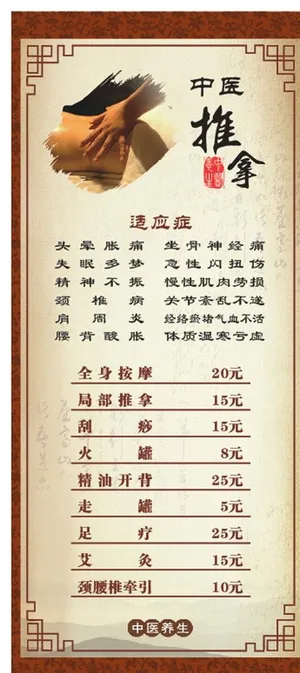 中医
推拿
适应症
头晕胀痛 坐骨神经痛
失眠多梦 急性闪扭伤
精神不振 慢性肌肉劳损
颈椎病 关节紊乱不遂
肩周炎 经络瘀堵气血不活
腰背酸胀 体质湿寒亏虚
全身按摩 20元
局部推拿 15元
刮痧 15元
火罐 8元
精油开背 25元
走罐 5元
足疗 25元
艾灸 15元
颈腰椎牵引 10元
中医养生